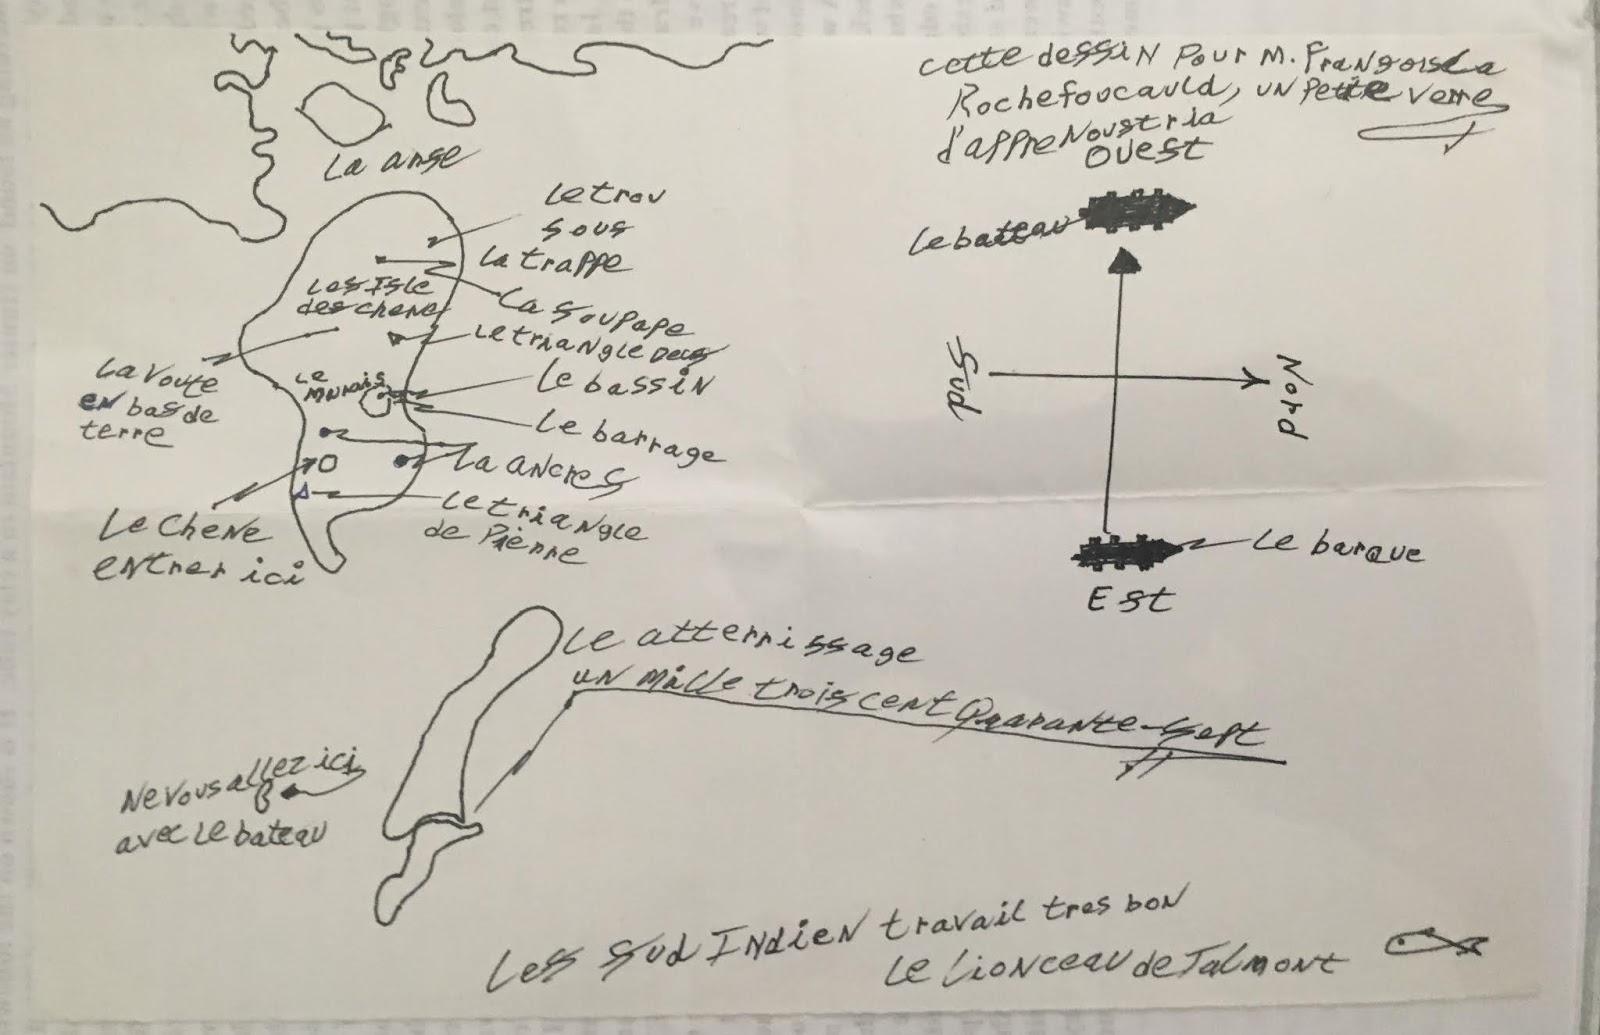 cette dessin pour M. Françoise La
Rochefoucauld, un petite verre
d'appre Noustria
Ouest
La anse
Le trou
sous
La trappe
Le bateau
Les Isle
des chene
La soupape
Le triangle
La voute
en bas de
terre
Le
Marais
Le bassin
Sud
Nord
Le barrage
La ancres
Le chene
entrer ici
Le triangle
de Pierre
Le barque
Est
Le atterrissage
un mille trois cent Quarante-sept
Ne vous allez ici
avec Le bateau
Les Sud Indien travail tres bon
Le Lionceau de Talmont